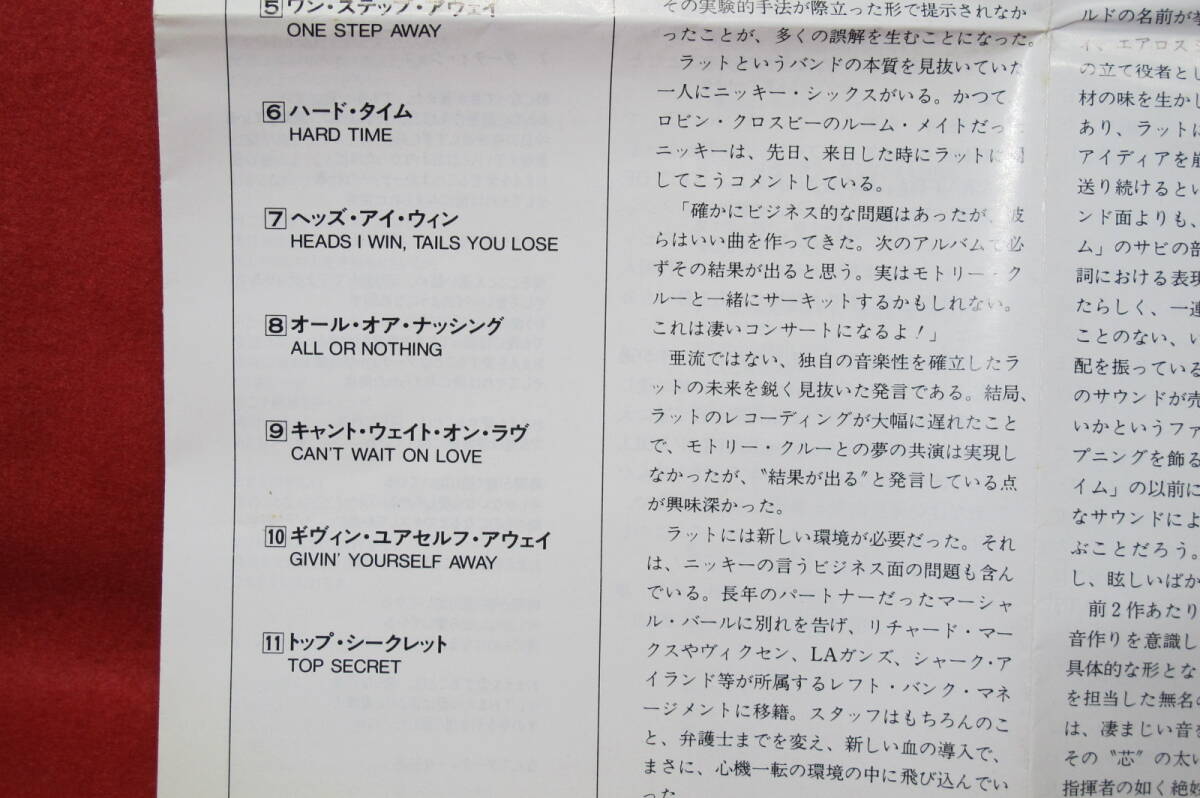 5 ワン・ステップ・アウェイ
ONE STEP AWAY
6 ハード・タイム
HARD TIME
7 ヘッズ・アイ・ウィン
HEADS I WIN, TAILS YOU LOSE
8 オール・オア・ナッシング
ALL OR NOTHING
9 キャント・ウェイト・オン・ラヴ
CAN'T WAIT ON LOVE
10 ギヴィン・ユアセルフ・アウェイ
GIVIN' YOURSELF AWAY
11 トップ・シークレット
TOP SECRET
その実験的手法が際立った形で提示されなか
ったことが、多くの誤解を生むことになった。
ラットというバンドの本質を見抜いていた
一人にニッキー・シックスがいる。かつて、
ロビン・クロスビーのルーム・メイトだっ
ニッキーは、先日、来日した時にラットに関
してこうコメントしている。
「確かにビジネス的な問題はあったが、彼
らはいい曲を作ってきた。次のアルバムで必
ずその結果が出ると思う。実はモトリー・ク
ルーと一緒にサーキットするかもしれない。
これは凄いコンサートになるよ！」
亜流ではない、独自の音楽性を確立したラ
ットの未来を鋭く見抜いた発言である。結局、
ラットのレコーディングが大幅に遅れたこと
で、モトリー・クルーとの夢の共演は実現し
なかったが、〝結果が出る〟と発言している点
が興味深かった。
ラットには新しい環境が必要だった。それ
は、ニッキーの言うビジネス面の問題も含ん
でいる。長年のパートナーだったマーシャ
ル・バールに別れを告げ、リチャード・マー
クスやヴィクセン、LAガンズ、シャーク・ア
イランド等が所属するレフト・バンク・マネ
ージメントに移籍。スタッフはもちろんのこ
と、弁護士までを変え、新しい血の導入で、
まさに、心機一転の環境の中に飛び込んでい
った
ルドの名前が
イ、エアロス
の立て役者とし
材の味を生かし
あり、ラットに
アイディアを
送り続けるとい
ンド面よりも、
ム」のサビの部
詞における表現
たらしく、一連
ことのない、い
配を振っている
のサウンドが売
いかというファ
プニングを飾る
イム」の以前に
なサウンドによ
ぶことだろう。
し、眩しいばか
前2作あたり
音作りを意識し
具体的な形とな
を担当した無名の
は、凄まじい音を
その〝芯〟の太い
指揮者の如く絶妙